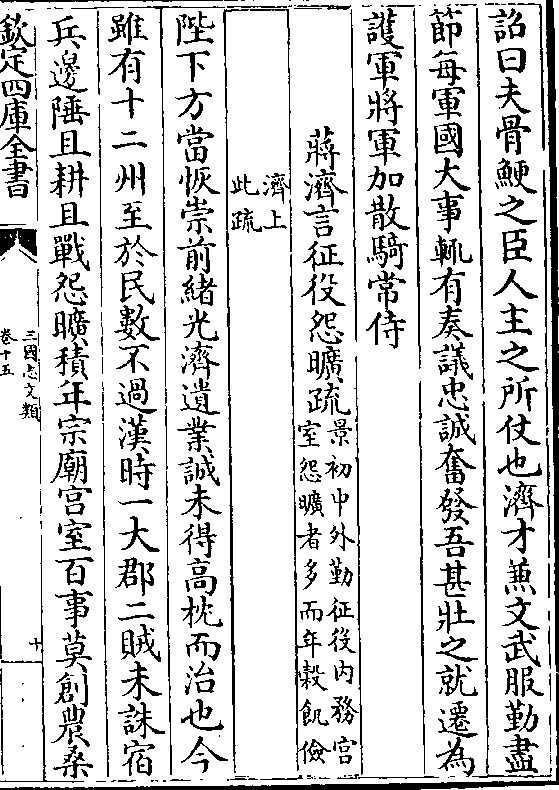 詔曰夫骨鯁之臣人主之所仗也濟才兼文武服勤盡
節每軍國大事輒有奏議忠誠奮發吾甚壯之就遷為
護軍將軍加散騎常侍
蔣濟言征役怨曠疏景初中外勤征役内務宮
室怨曠者多而年穀飢儉
濟上
此疏
陛下方當恢崇前緒光濟遺業誠未得高枕而治也今
雖有十二州至於民數不過漢時一大郡二賊未誅宿
兵邊陲且耕且戰怨曠積年宗廟宮室百事莫創農桑
欽定四庫全書
三國志文類
卷十五
十